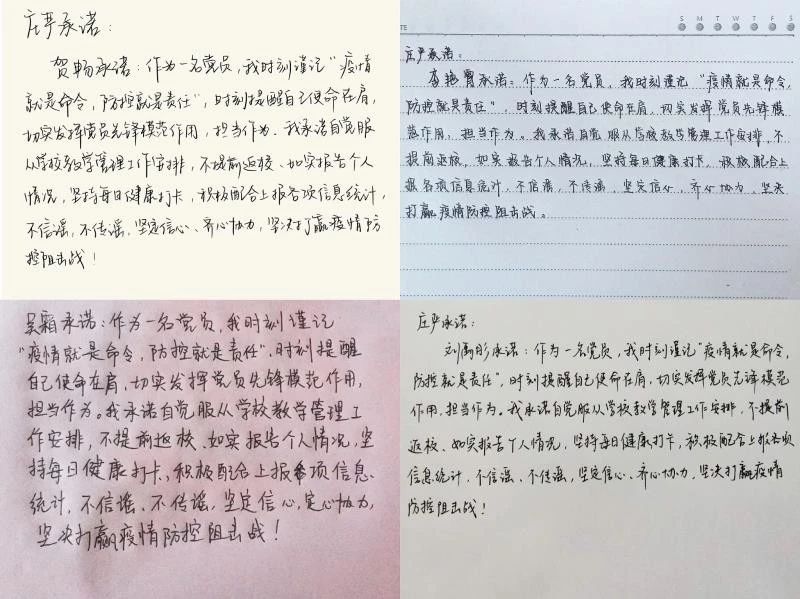 庄严承诺:
贺畅承诺:作为一名党员,我时刻谨记“疫情
就是命令,防控就是责任”,时刻提醒自己使命在肩,
切实发挥党员先锋模范作用,担当作为。我承诺自觉服
从学校教学管理工作安排,不提前返校、如实报告个人
情况,坚持每日健康打卡,积极配合上报各项信息统计,
不信谣,不传谣,坚定信心、齐心协力,坚决打赢疫情防
控阻击战!
TE
S M T W T F S
庄严承诺。
李艳 承诺。作为一名党员,我时刻谨记“疫情就是命令,
防控就是责任”,时刻提醒自己使命在肩,切实发挥党员先锋模
范作用,担当作为。我承诺自觉服从学校教学管理工作安排,不
提前返校,如实报告个人情况,坚持每日健康打卡,积极配合上
报各项信息统计,不信谣,不传谣,坚定信心,齐心协力,坚决
打赢疫情防控阻击战。
吴霜承诺:作为一名党员,我时刻谨记
“疫情就是命令,防控就是责任”,时刻提醒
自己使命在肩,切实发挥党员先锋模范作用,
担当作为。我承诺自觉服从学校教学管理工
作安排,不提前返校、如实报告个人情况,坚
持每日健康打卡,积极配合上报各项信息
统计,不信谣、不传谣,坚定信心,定心协力,
坚决打赢疫情防控阻击战!
庄严承诺:
刘 彤承诺:作为一名党员,我时刻谨记“疫情就是命令,
防控就是责任”,时刻提醒自己使命在肩,切实发挥党员先锋模范
作用,担当作为。我承诺自觉服从学校教学管理工作安排,不提前
返校、如实报告个人情况,坚持每日健康打卡,积极配合上报各项
信息统计,不信谣、不传谣,坚定信心、齐心协力,坚决打赢疫情
防控阻击战!